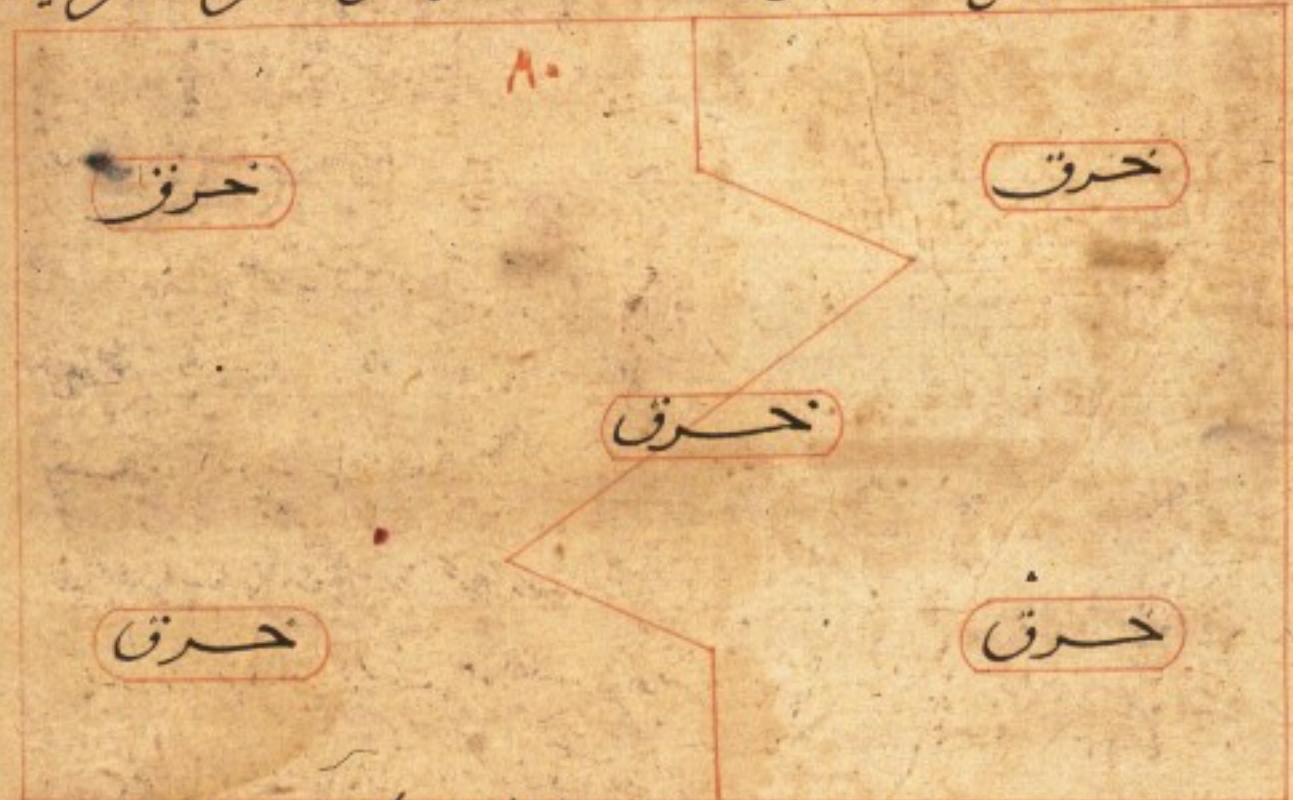 ٨٠
خرق
خرق
خرق
خرق
خرق